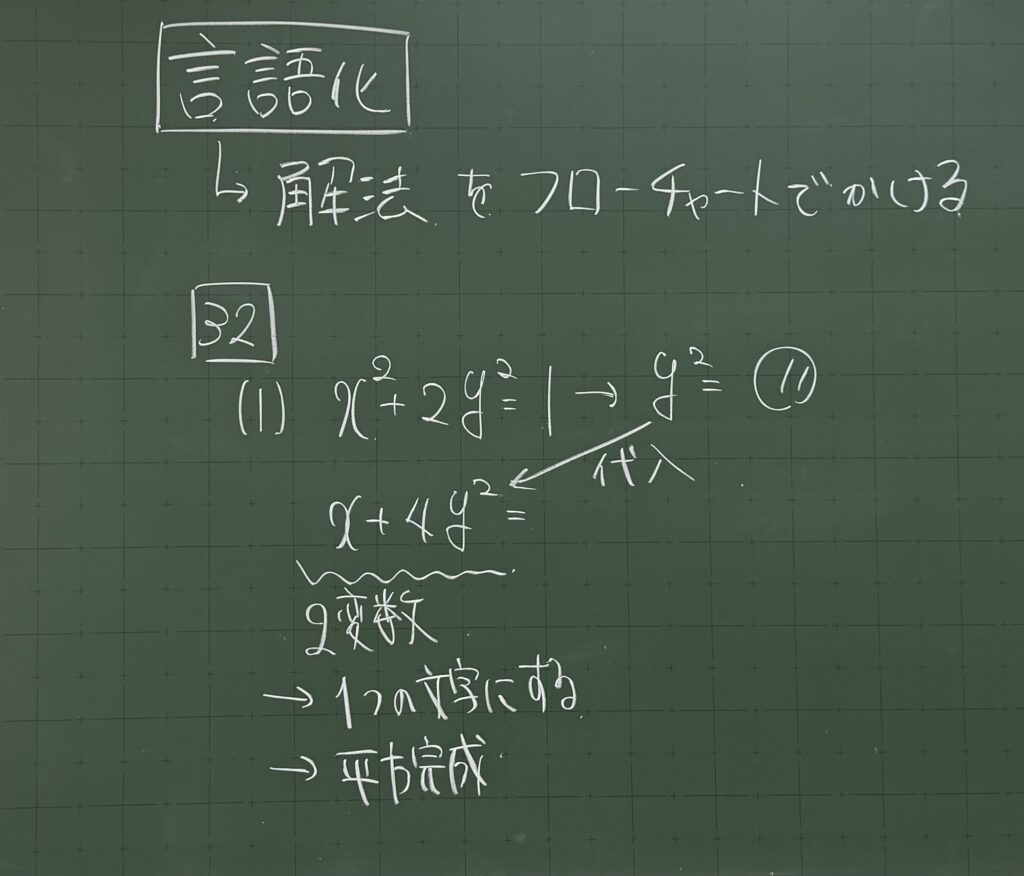 言語化
↳ 解法 を フローチャートでかける
32
(1) x²+2y²=1 → y²= 〃
代入
x+4y²=
2変数
→ 1つの文字にする
→ 平方完成